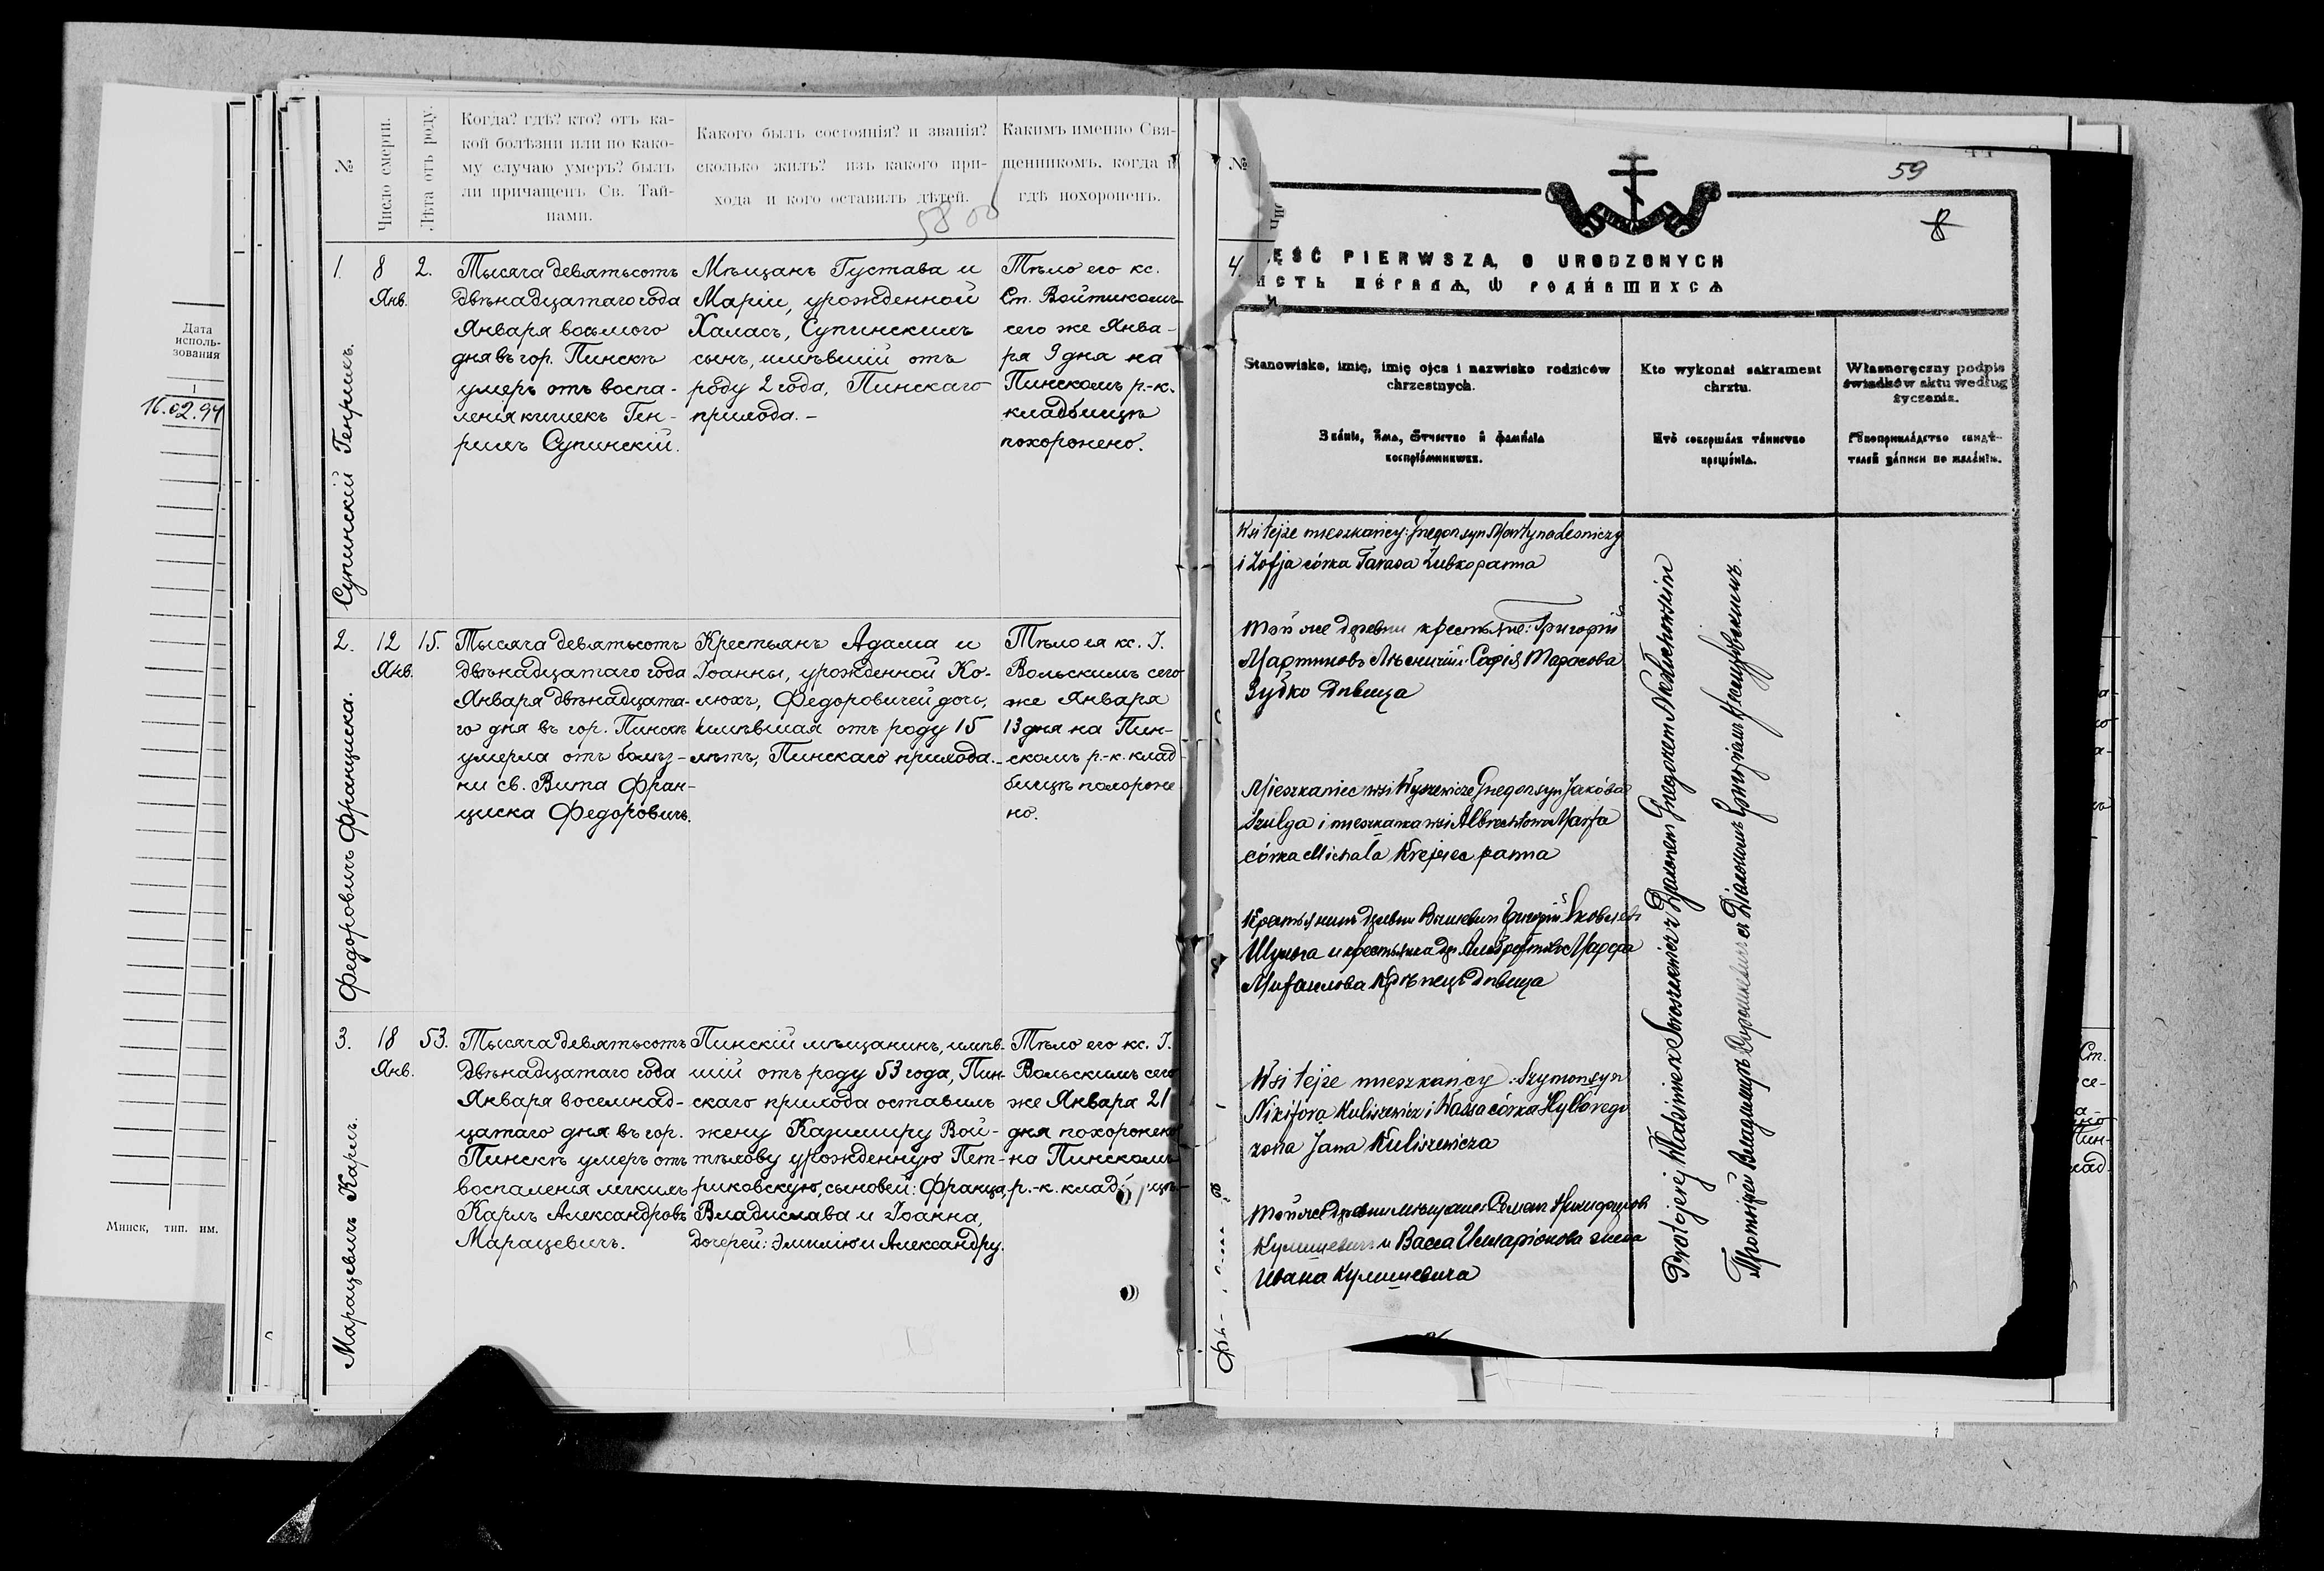 Дата
исполь-
зования
1
16.02.94
Минск, тип. им.
№
Число смерти.
Лѣта отъ роду.
Когда? гдѣ? кто? отъ ка-
кой болѣзни или по како-
му случаю умеръ? былъ
ли причащенъ Св. Тай-
нами.
Какого былъ состоянія? и званія?
сколько жилъ? изъ какого при-
хода и кого оставилъ дѣтей.
Какимъ именно Свя-
щенникомъ, когда и
гдѣ похороненъ.
58 об
1.
8
Янв.
2.
Супинскій Генрихъ.
Тысяча девятьсотъ
двѣнадцатаго года
Января восьмого
дня въ гор. Пинскѣ
умеръ отъ воспа-
ленія кишекъ Ген-
рихъ Супинскій.
Мѣщанъ Густава и
Маріи, урожденной
Халасъ, Супинскихъ
сынъ, имѣвшій отъ
роду 2 года, Пинскаго
прихода. -
Тѣло его кс.
Ст. Войтикомъ
сего же Янва-
ря 9 дня на
Пинскомъ р.-к.
кладбищѣ
похоронено.
2.
12
Янв.
15.
Федоровичъ Франциска.
Тысяча девятьсотъ
двѣнадцатаго года
Января двѣнадцата-
го дня въ гор. Пинскѣ
умерла отъ болѣз-
ни св. Вита Фран-
циска Федоровичъ.
Крестьянъ Адама и
Іоанны, урожденной Ко-
люхъ, Федоровичей дочь,
имѣвшая отъ роду 15
лѣтъ, Пинскаго прихода. -
Тѣло ея кс. І.
Вольскимъ сего
же Января
13 дня на Пин-
скомъ р.-к. клад-
бищѣ похороне
но.
3.
18
Янв.
53.
Марацевичъ Карлъ.
Тысяча девятьсотъ
двѣнадцатаго года
Января восемнад-
цатаго дня въ гор.
Пинскѣ умеръ отъ
воспаленія легкихъ
Карлъ Александровъ
Марацевичъ.
Пинскій мѣщанинъ, имѣв-
шій отъ роду 53 года, Пин-
скаго прихода оставилъ
жену Казимиру Вой-
тѣхову урожденную Пет-
риковскую, сыновей: Франца,
Владислава и Іоанна,
дочерей: Эмилію и Александру.
Тѣло его кс. І.
Вольскимъ сего
же Января 21
дня похоронено
на Пинскомъ
р.-к. кладбищѣ
№
4.
59
8
ĘŚĆ PIERWSZA, O URODZONYCH
ИСТЬ ПЕ́РВАѦ, Ѡ РОДИ́ВШИХСѦ
Stanowisko, imię, imię ojca i nazwisko rodziców
chrzestnych.
Зва́нїе, и҆́мѧ, ѻ҆́тчество и҆ фамилїѧ
воспрїе́мниковъ.
Kto wykonał sakrament
chrztu.
Кто̀ соверша́лъ та́инство
креще́нїѧ.
Własnoręczny podpis
świadków aktu według
życzenia.
Рꙋкоприкла́дство свидѣ́-
телей за́писи по жела́нїю.
Wsi tejże mieszkańcy: Gregor syn Martyna Lesniczy
i Zofja córka Tarasa Zubko panna
Той же деревни крестьяне: Григорій
Мартиновъ Лѣсничій Софія Тарасова
Зубко дѣвица
Mieszkaniec wsi Wyszewicze Gregor syn Jakóba
Szulga i mieszkanka wsi Albrechtowo Marfa
córka Michała Krejpiec panna
Крестьянинъ деревни Вышевичъ Григорій Яковлевъ
Шульга и крестьянка др. Альбрехтово Марфа
Михаилова дѣвица
Wsi tejże mieszkańcy: Szymon syn
Nikifora Kuliszewicz i Wassa córka
żona Jana Kuliszewicza
Той же деревни мѣщане: Семенъ Никифоровъ
Кулишевичъ и Васса Иларіонова жена
Ивана Кулишевича
Protojerej Włodzimierz Doroszkiewicz z Djakonem Gregorem
Протоіерей Владимиръ Дорошкевичъ съ Діакономъ Григоріемъ